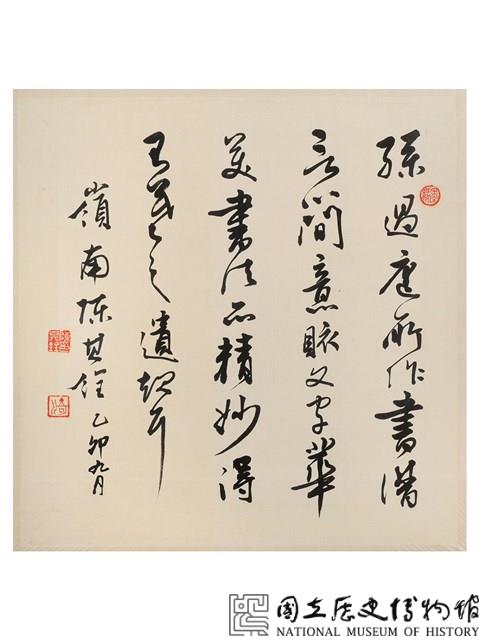 孫過庭所作書譜
言簡意賅文字華
美書法亦精妙得
羲之遺耳
嶺南陳其銓乙卯九月
國立歷史博物館
NATIONAL MUSEUM OF HISTORY